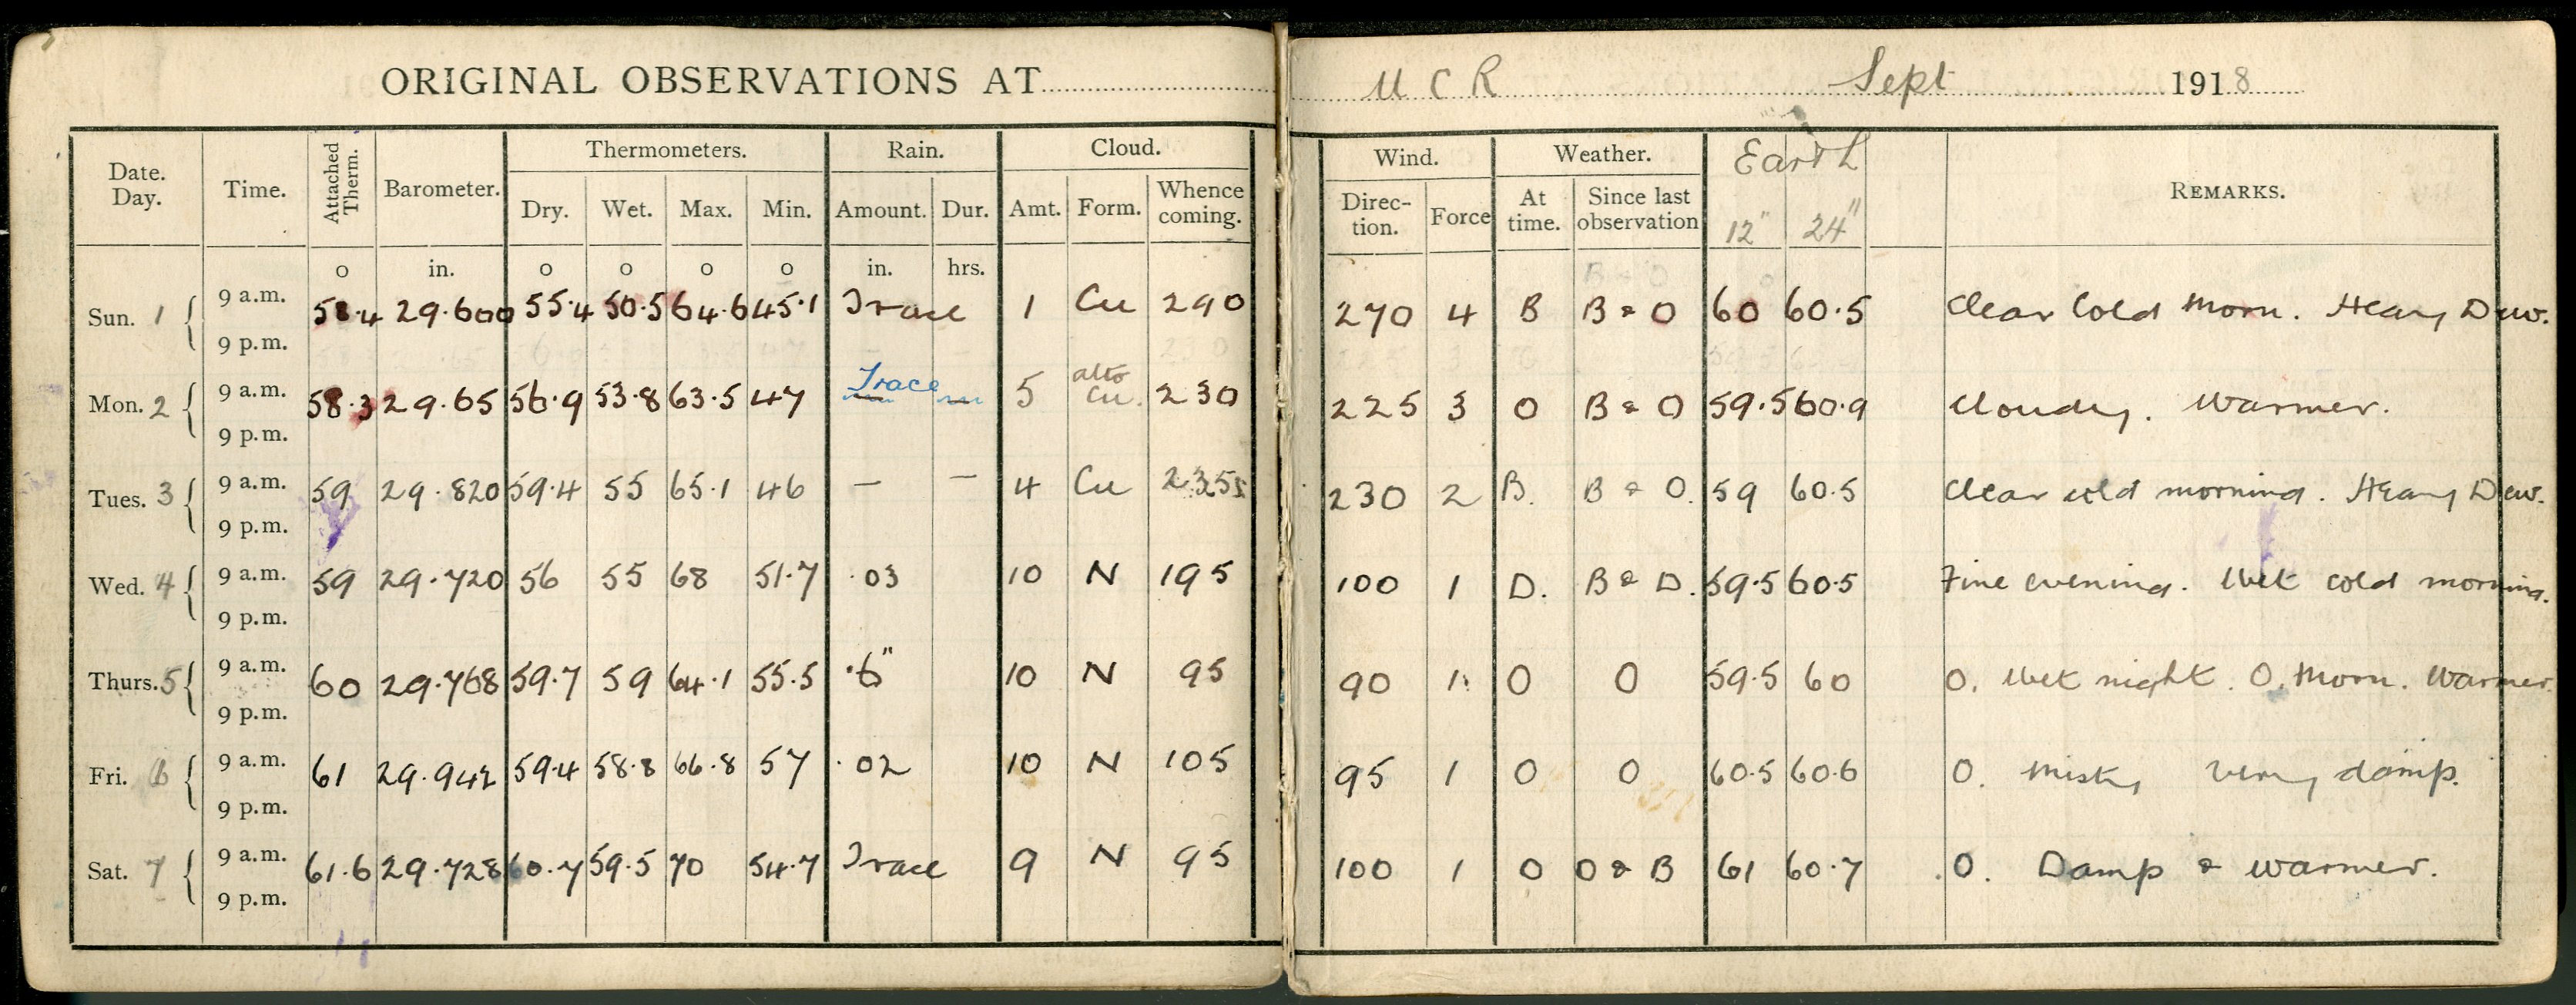 ORIGINAL OBSERVATIONS AT U C R Sept 1918
Date. Day. Time. Attached Therm. Barometer. Thermometers. Rain. Cloud. Wind. Weather. Earth REMARKS.
Dry. Wet. Max. Min. Amount. Dur. Amt. Form. Whence coming. Direc- tion. Force At time. Since last observation 12" 24"
o in. o o o o in. hrs.
Sun. 1 9 a.m. 58.4 29.600 55.4 50.5 64.6 45.1 Trace 1 Cu 290 270 4 B B & O 60 60.5 Clear Cold Morn. Heavy Dew.
9 p.m.
Mon. 2 9 a.m. 58.3 29.65 56.9 53.8 63.5 47 Trace — 5 alto Cu. 230 225 3 O B & O 59.5 60.9 Cloudy. Warmer.
9 p.m.
Tues. 3 9 a.m. 59 29.820 59.4 55 65.1 46 — — 4 Cu 235 230 2 B. B & O. 59 60.5 Clear cold morning. Heavy Dew.
9 p.m.
Wed. 4 9 a.m. 59 29.720 56 55 68 51.7 .03 10 N 195 100 1 D. B & D. 59.5 60.5 Fine evening. Wet cold morning.
9 p.m.
Thurs. 5 9 a.m. 60 29.768 59.7 59 64.1 55.5 .6" 10 N 95 90 1. O O 59.5 60 O. Wet night. O. Morn. Warmer.
9 p.m.
Fri. 6 9 a.m. 61 29.942 59.4 58.8 66.8 57 .02 10 N 105 95 1 O O 60.5 60.6 O. Misty very damp.
9 p.m.
Sat. 7 9 a.m. 61.6 29.728 60.7 59.5 70 54.7 Trace 9 N 95 100 1 O O & B 61 60.7 O. Damp & warmer.
9 p.m.